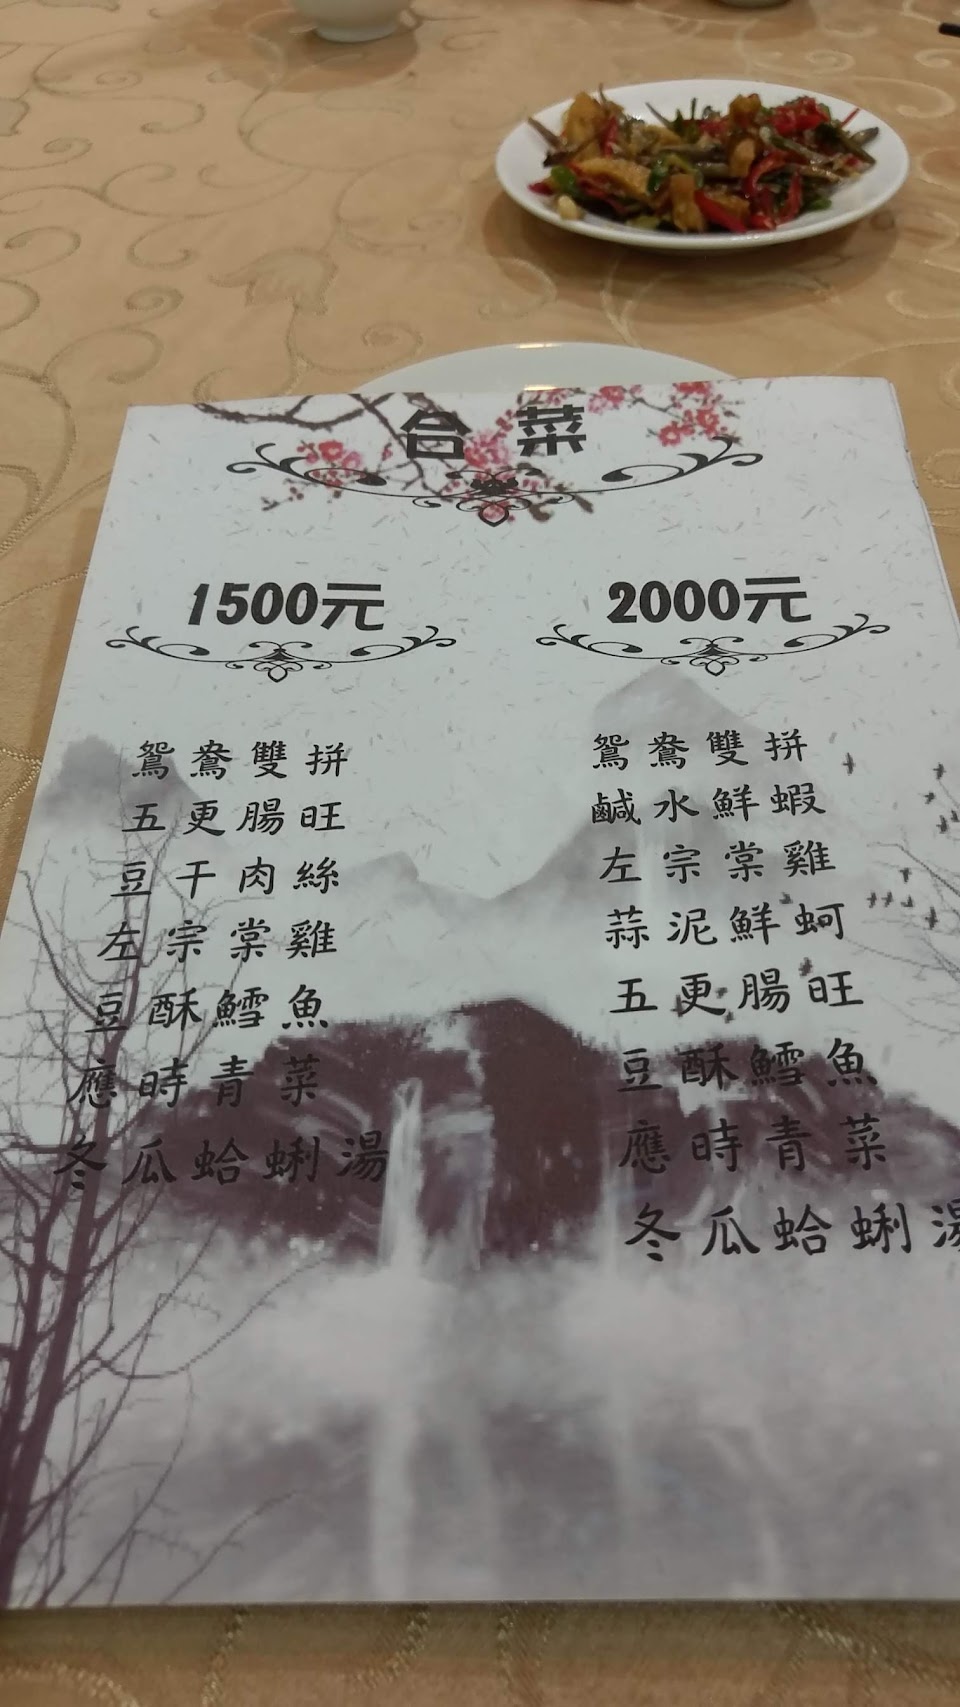 合菜
1500元
鴛鴦雙拼
五更腸旺
豆干肉絲
左宗棠雞
豆酥鱈魚
應時青菜
冬瓜蛤蜊湯
2000元
鴛鴦雙拼
鹹水鮮蝦
左宗棠雞
蒜泥鮮蚵
五更腸旺
豆酥鱈魚
應時青菜
冬瓜蛤蜊湯